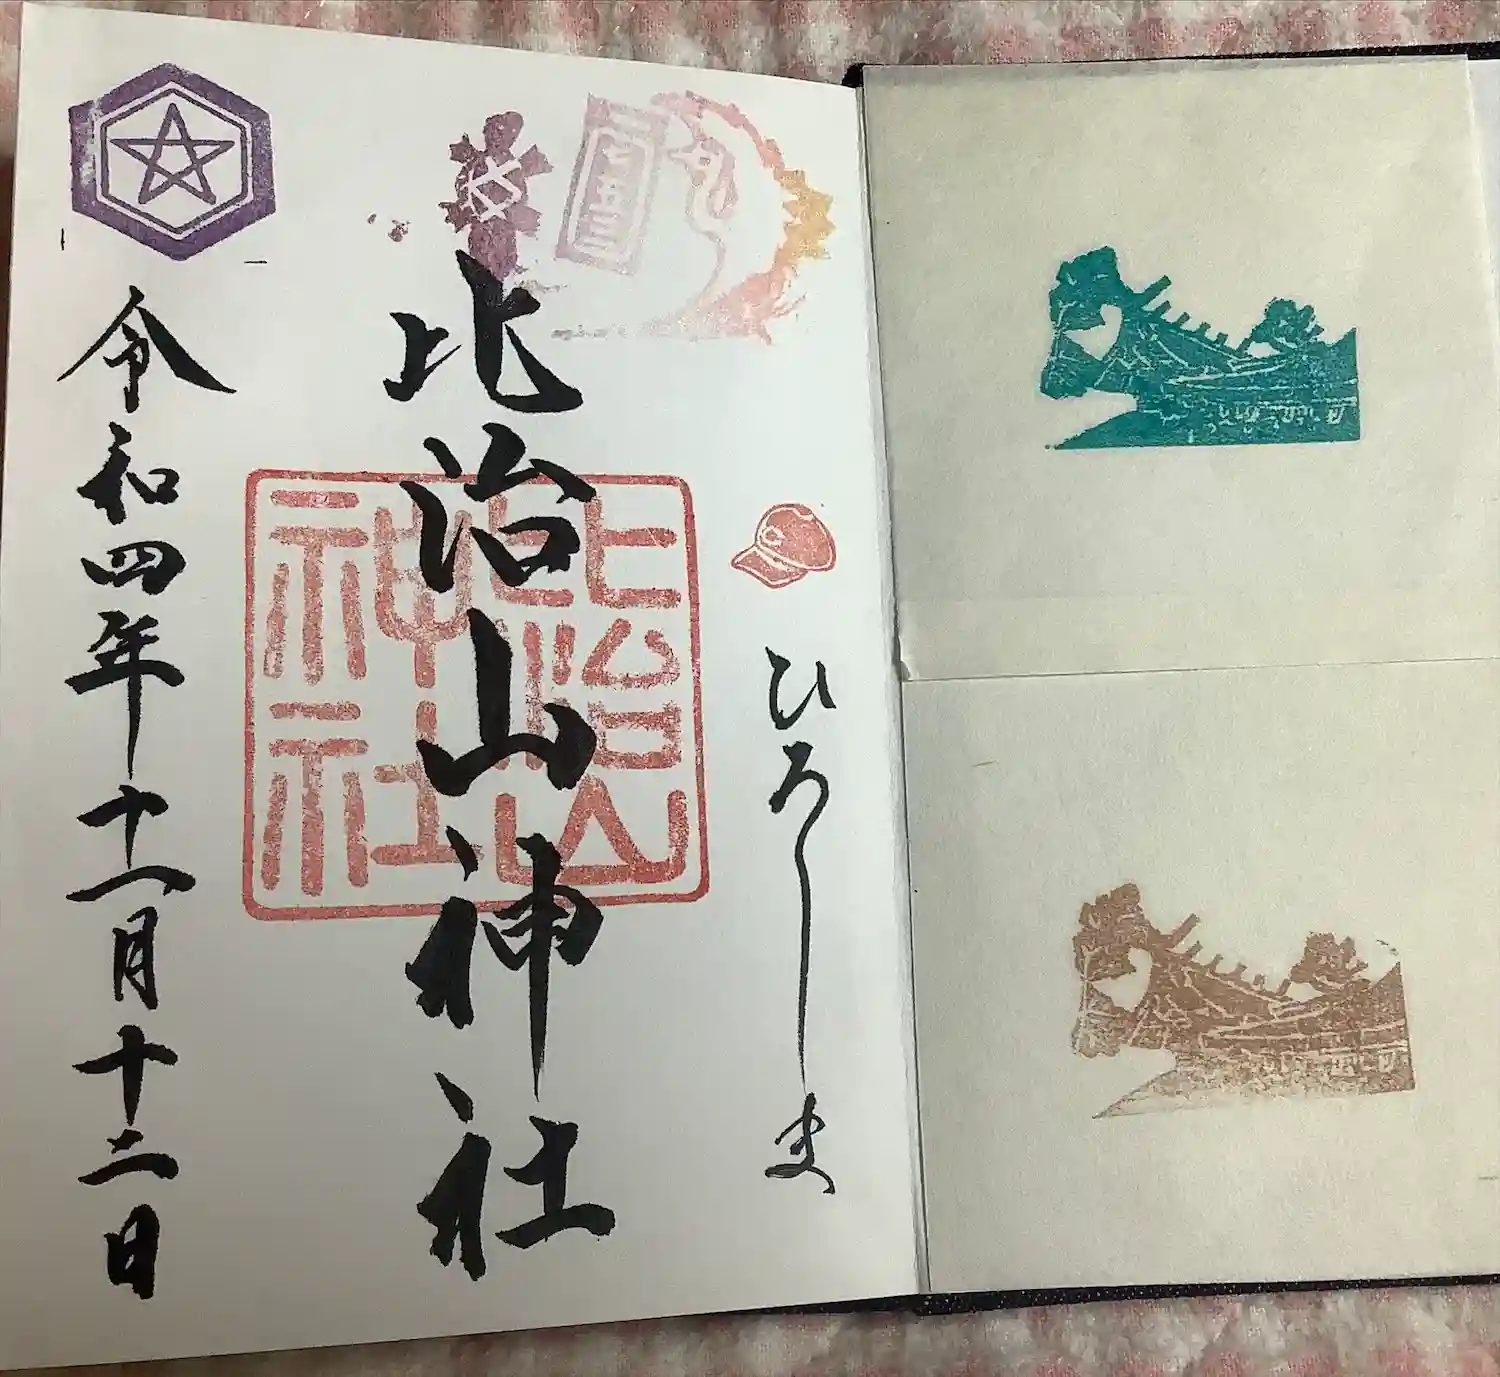 ひろしま
比治山神社
比治山
神社
令和四年十一月十二日
七五三